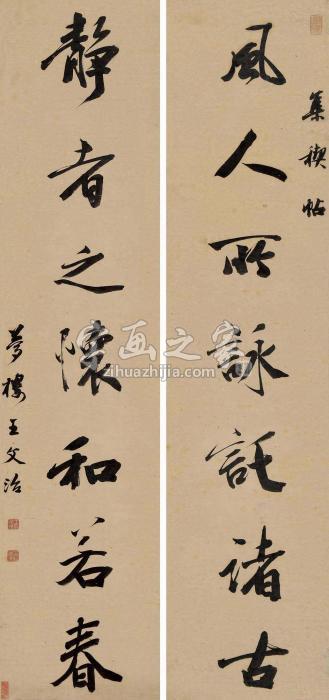 集禊帖
風人所詠託諸古
靜者之懷和若春
夢樓王文治
字画之家
zihuazhijia.com